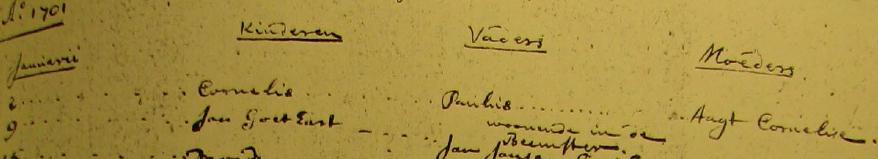 Ao 1701
Kinderen Vaders Moeders
Januarii
2 Cornelis Paulus Aagt Cornelisse.
9 Jan Goet woonende in de
Beemster.
Jan